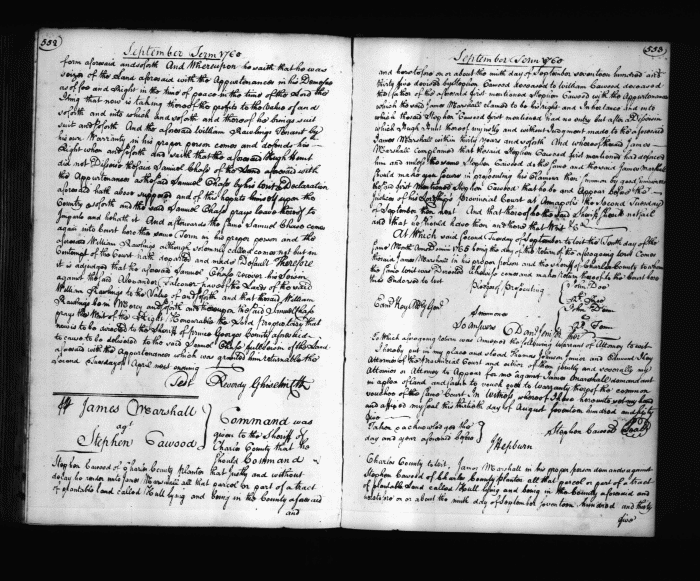 552
September Term 1760
form aforesaid and soforth And Whereupon he saith that he was
seized of the Land aforesaid with the Appurtenances in his Demesne
as of fee and Right in the time of peace in the time of the Lord the
King that now is taking thereof the profits to the Value of and
soforth and into which and soforth and thereof he brings suit
and soforth And the aforesaid William Rawlings Tenant by
his own Warranty in his proper person comes and defends his
Right when and soforth and saith that the aforesaid Hugh Hunt
did not Disseise the said Samuel Chase of the Land aforesaid with
the Appurtenances as the said Samuel Chase by his Writ & Declaration
aforesaid hath above supposed and of this he puts himself upon the
County and soforth and the said Samuel Chase prays leave thereof to
Imparle and hehath it And afterwards the same Samuel Chase comes
again into Court here the same Term in his proper person and the
aforesaid William Rawlings although solemnly called comes not but in
Contempt of the Court hath departed and made Default Therefore
it is adjudged that the aforesaid Samuel Chase recover his Seisin
against the said Alexander Falconer of the Lands of the said
William Rawlings to the Value of and soforth and that the said William
Rawlings be in Mercy and soforth and thereupon the said Samuel Chase
prays the Writ of the Right Honourable the Lord Proprietary that
now is to be awarded to the Sheriff of Prince Georges County aforesaid
to cause to be delivered to the said Samuel Chase full Seisin of the Land
aforesaid with the Appurtenances which was granted him returnable the
second Tuesday of April next ensuing
Test Reverdy Ghiselin Clk
James Marshall
agt
Stephen Cawood
Command was
given to the Sheriff of
Charles County that he
should Command
Stephen Cawood of Charles County Planter that justly and without
delay he render unto James Marshall all that parcel or part of a tract
of plantable land called Hall lying and being in the County aforesaid
and
553
September Term 1760
and heretofore on or about the ninth day of September seventeen hundred and
thirty five devised by Stephen Cawood deceased to William Cawood deceased
the father of the aforesaid first mentioned Stephen Cawood with the Appurtenances
which the said James Marshall claims to be his right and Inheritance and into
which the said Stephen Cawood first mentioned had no entry but after a Disseisin
which Hugh Hunt thereof unjustly and without Judgment made to the aforesaid
James Marshall within thirty years and soforth And whereof the said James
Marshall complained that the said Stephen Cawood first mentioned had deforced
him and unless the same Stephen Cawood do the same and the said James Marshall
should make you secure in prosecuting his Plaint then Summon by good summoners
the said first Mentioned Stephen Cawood that he be and Appear before the
Justices of his Lordships Provincial Court at Annapolis the Second Tuesday
of September then next And that thereof he the said Sheriff should not fail
and that he should have then and there that Writ &c
At Which said second Tuesday of September to wit the Tenth day of the
same Month being the day of the return of the aforegoing writ comes
the said James Marshall in his proper person and the Sheriff of Charles County to whom
the same writ was Directed likewise comes and makes return thereof to the Court here
thus Endorsed to wit
Pledges of Prosecuting
John Doe
Richd Roe
Summoners
John Den
Richd Fen
So answers
To Which aforegoing return was Annexed the following Warrant of Attorney to wit
I hereby put in my place and stead Thomas Johnson Junior and Edmund Key
Attorneys of the Provincial Court and either of them jointly and severally my
Attornies or Attorney to Appear for me against James Marshall demandant
in a plea of land and such to vouch over to warranty thereof the common
vouchee of the same Court. In Witness whereof I have hereunto set my hand
and affixed my seal this thirtieth day of August seventeen hundred and sixty
five
Taken & acknowledged the
day and year aforesaid before
Stephen Cawood
J Hepburn
Charles County to wit. James Marshall in his proper person demands against
Stephen Cawood of Charles County Planter all that parcel or part of a tract
of plantable Land called Hall lying and being in the County aforesaid and
heretofore on or about the ninth day of September seventeen hundred and thirty
five